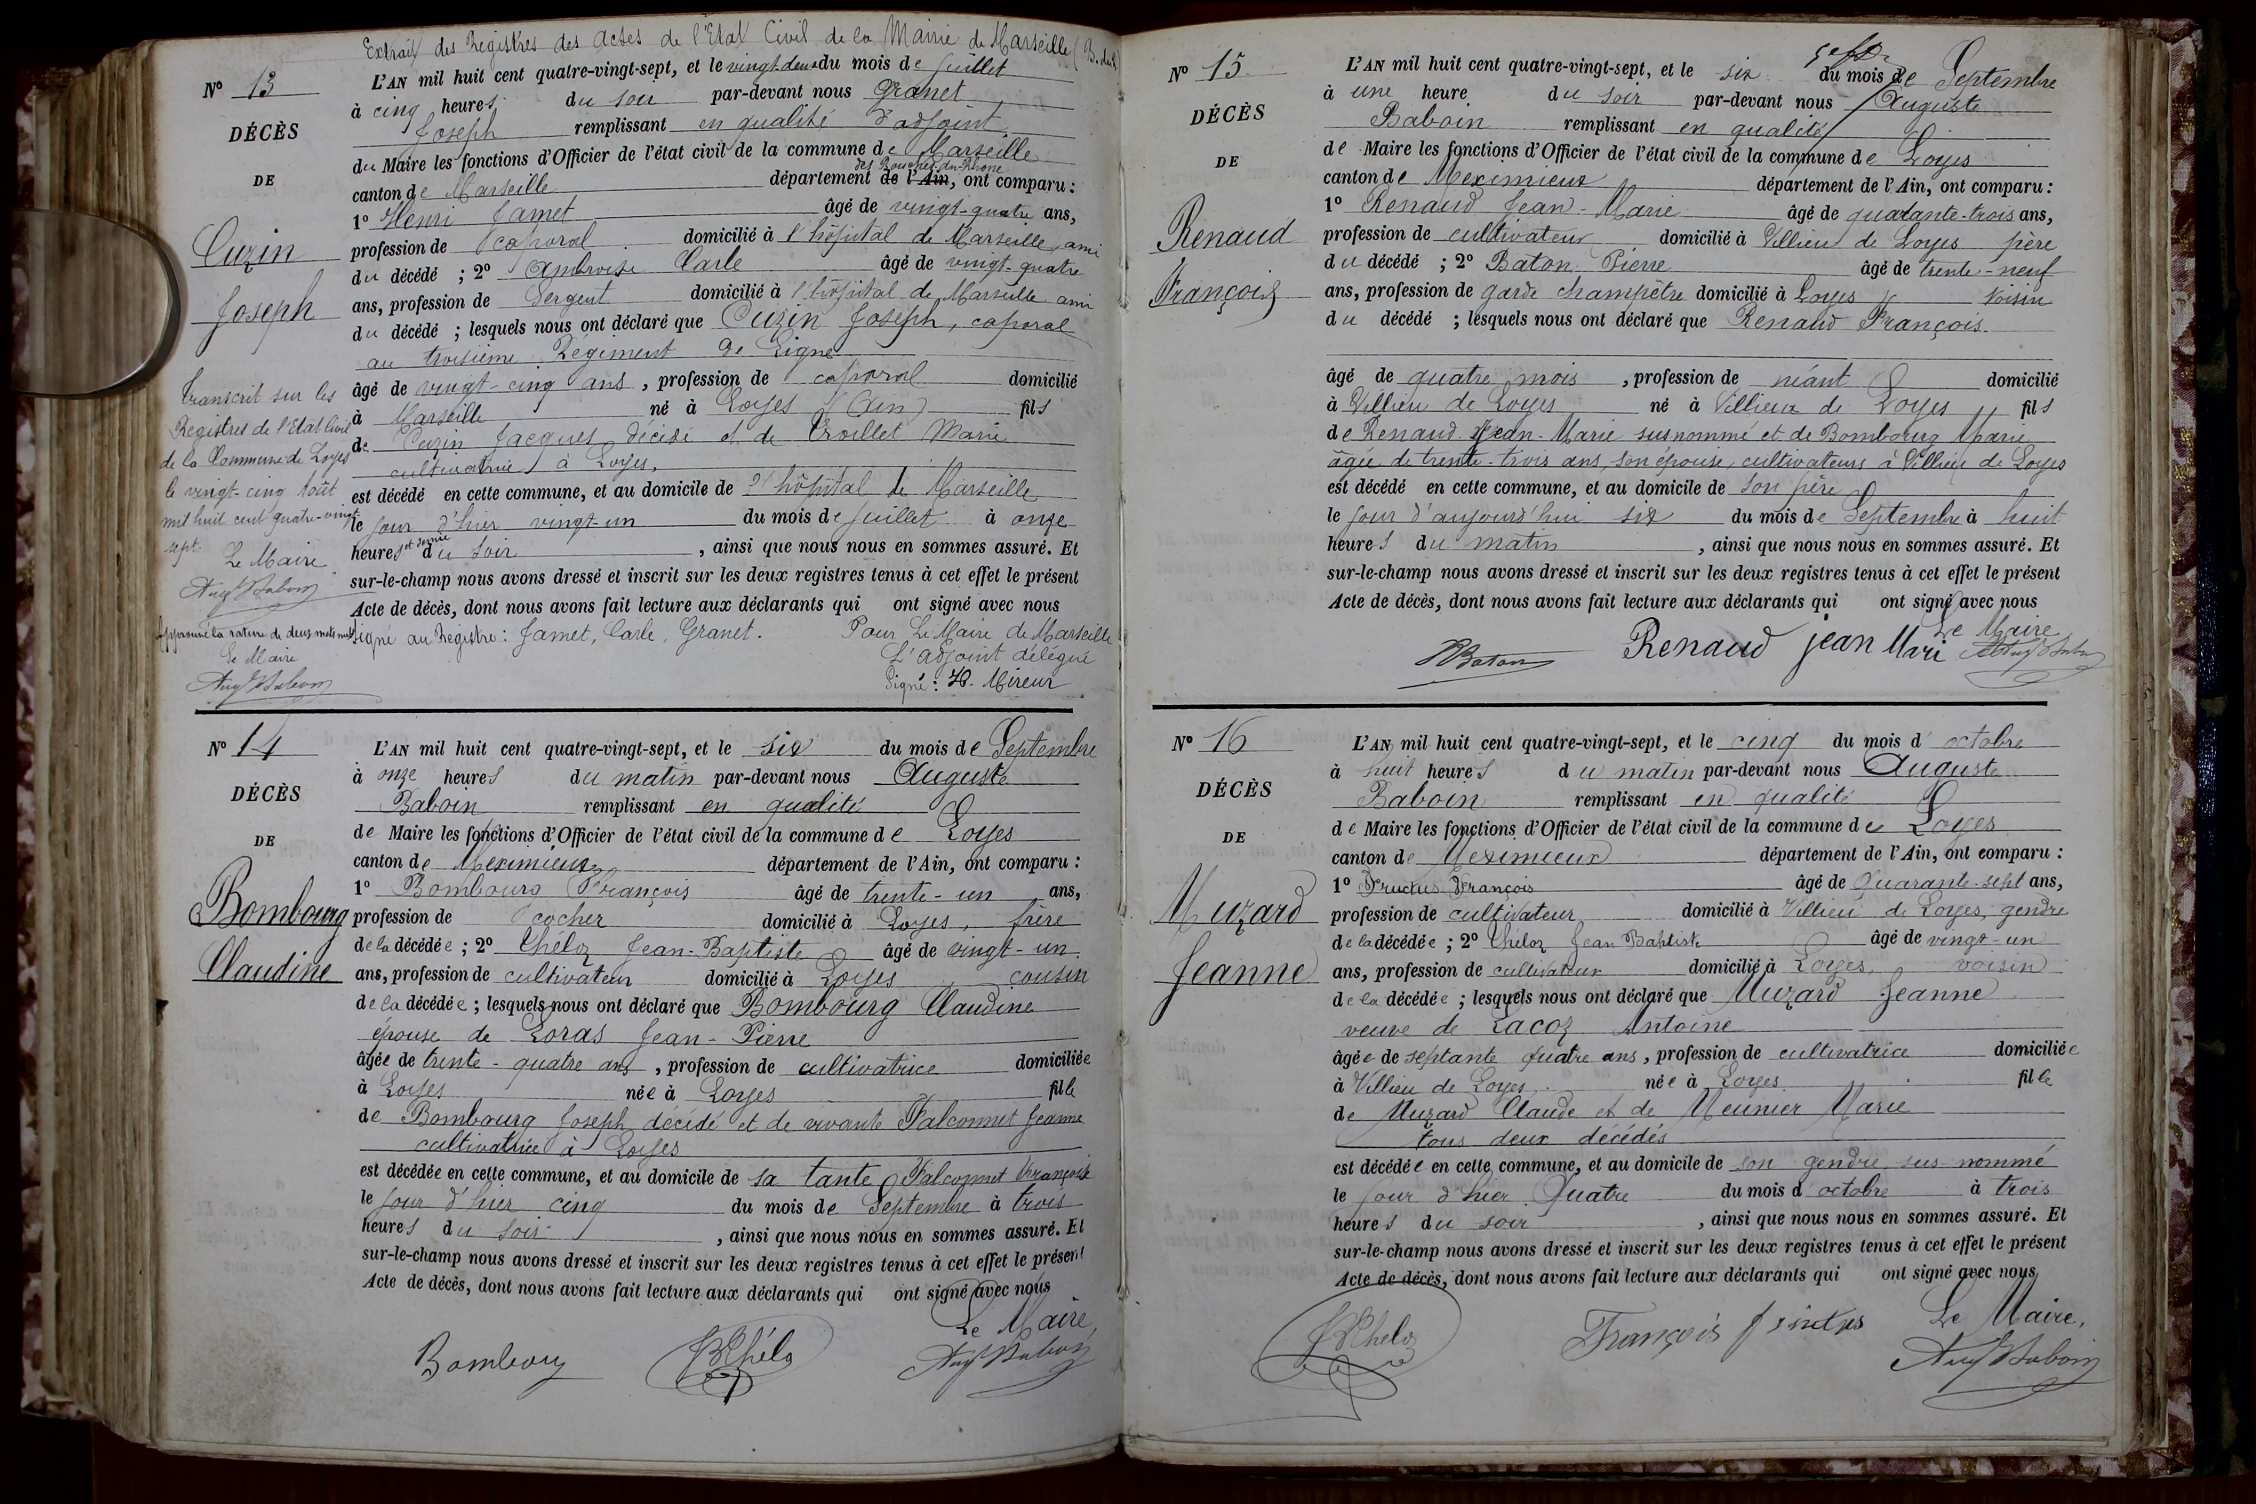 Extrait des Registres des actes de l'Etat Civil de la Mairie de Marseille (B. du R
N° 13
DÉCÈS
DE
Cuzin
Joseph
Transcrit sur les
Registres de l'Etat Civil
de la Commune de Loyes
le vingt-cinq Août
mil huit cent quatre-vingt
sept.
Le Maire
Aug Baboin
Approuvé la rature de deux mots nuls
Le Maire
Aug Baboin
L'AN mil huit cent quatre-vingt-sept, et le vingt deux du mois de Juillet
à cinq heures du soir par-devant nous Granet
Joseph remplissant en qualité d'adjoint
du Maire les fonctions d'Officier de l'état civil de la commune de Marseille
des Bouches-du-Rhône
canton de Marseille département de l'Ain, ont comparu :
1° Henri Jamet âgé de vingt-quatre ans,
profession de caporal domicilié à l'hôpital de Marseille, ami
du décédé ; 2° Ambroise Carle âgé de vingt-quatre
ans, profession de Sergent domicilié à l'hôpital de Marseille ami
du décédé ; lesquels nous ont déclaré que Cuzin Joseph, caporal
au troisième Régiment de Ligne
âgé de vingt-cinq ans, profession de caporal domicilié
à Marseille né à Loyes (Ain) fils
de Cuzin Jacques décédé et de Croillet Marie
cultivatrice à Loyes,
est décédé en cette commune, et au domicile de l'hôpital de Marseille
le jour d'hier vingt-un du mois de Juillet à onze
heures et demie du soir, ainsi que nous nous en sommes assuré. Et
sur-le-champ nous avons dressé et inscrit sur les deux registres tenus à cet effet le présent
Acte de décès, dont nous avons fait lecture aux déclarants qui ont signé avec nous
Signé au Registre : Jamet, Carle, Granet. Pour Le Maire de Marseille
L'adjoint délégué
Signé : H. Mireur
N° 14
DÉCÈS
DE
Bombourg
Claudine
L'AN mil huit cent quatre-vingt-sept, et le six du mois de Septembre
à onze heures du matin par-devant nous Auguste
Baboin remplissant en qualité
de Maire les fonctions d'Officier de l'état civil de la commune de Loyes
canton de Meximieux département de l'Ain, ont comparu :
1° Bombourg François âgé de trente-un ans,
profession de cocher domicilié à Loyes, frère
de la décédée ; 2° Chéloz Jean-Baptiste âgé de vingt-un
ans, profession de cultivateur domicilié à Loyes cousin
de la décédée ; lesquels nous ont déclaré que Bombourg Claudine
épouse de Loras Jean-Pierre
âgée de trente-quatre ans, profession de cultivatrice domiciliée
à Loyes née à Loyes fille
de Bombourg Joseph décédé et de vivante Falconnet Jeanne
cultivatrice à Loyes
est décédée en cette commune, et au domicile de sa tante Falconnet Françoise
le jour d'hier cinq du mois de Septembre à trois
heures du soir, ainsi que nous nous en sommes assuré. Et
sur-le-champ nous avons dressé et inscrit sur les deux registres tenus à cet effet le présent
Acte de décès, dont nous avons fait lecture aux déclarants qui ont signé avec nous
Le Maire,
Bombourg JB Chéloz Aug Baboin
N° 15
DÉCÈS
DE
Renaud
François
L'AN mil huit cent quatre-vingt-sept, et le six du mois de Septembre
à une heure du soir par-devant nous Auguste
Baboin remplissant en qualité
de Maire les fonctions d'Officier de l'état civil de la commune de Loyes
canton de Meximieux département de l'Ain, ont comparu :
1° Renaud Jean-Marie âgé de quarante-trois ans,
profession de cultivateur domicilié à Villieu de Loyes père
du décédé ; 2° Baton Pierre âgé de trente-neuf
ans, profession de garde champêtre domicilié à Loyes voisin
du décédé ; lesquels nous ont déclaré que Renaud François
âgé de quatre mois, profession de néant domicilié
à Villieu de Loyes né à Villieux de Loyes fils
de Renaud Jean-Marie susnommé et de Bombourg Marie
âgée de trente-trois ans, son épouse, cultivateurs à Villieu de Loyes
est décédé en cette commune, et au domicile de son père
le jour d'aujourd'hui six du mois de Septembre à huit
heures du matin, ainsi que nous nous en sommes assuré. Et
sur-le-champ nous avons dressé et inscrit sur les deux registres tenus à cet effet le présent
Acte de décès, dont nous avons fait lecture aux déclarants qui ont signé avec nous
Le Maire
PBaton Renaud jean Mari Aug Baboin
N° 16
DÉCÈS
DE
Muzard
Jeanne
L'AN mil huit cent quatre-vingt-sept, et le cinq du mois d'octobre
à huit heures du matin par-devant nous Auguste
Baboin remplissant en qualité
de Maire les fonctions d'Officier de l'état civil de la commune de Loyes
canton de Meximieux département de l'Ain, ont comparu :
1° Fructus François âgé de Quarante-sept ans,
profession de cultivateur domicilié à Villieu de Loyes, gendre
de la décédée ; 2° Chéloz Jean Baptiste âgé de vingt-un
ans, profession de cultivateur domicilié à Loyes, voisin
de la décédée ; lesquels nous ont déclaré que Muzard Jeanne
veuve de Lacoz Antoine
âgée de septante quatre ans, profession de cultivatrice domiciliée
à Villieu de Loyes née à Loyes fille
de Muzard Claude et de Meunier Marie
tous deux décédés
est décédée en cette commune, et au domicile de son gendre sus-nommé
le jour d'hier Quatre du mois d'octobre à trois
heures du soir, ainsi que nous nous en sommes assuré. Et
sur-le-champ nous avons dressé et inscrit sur les deux registres tenus à cet effet le présent
Acte de décès, dont nous avons fait lecture aux déclarants qui ont signé avec nous
Le Maire,
JB Cheloz François Aug Baboin